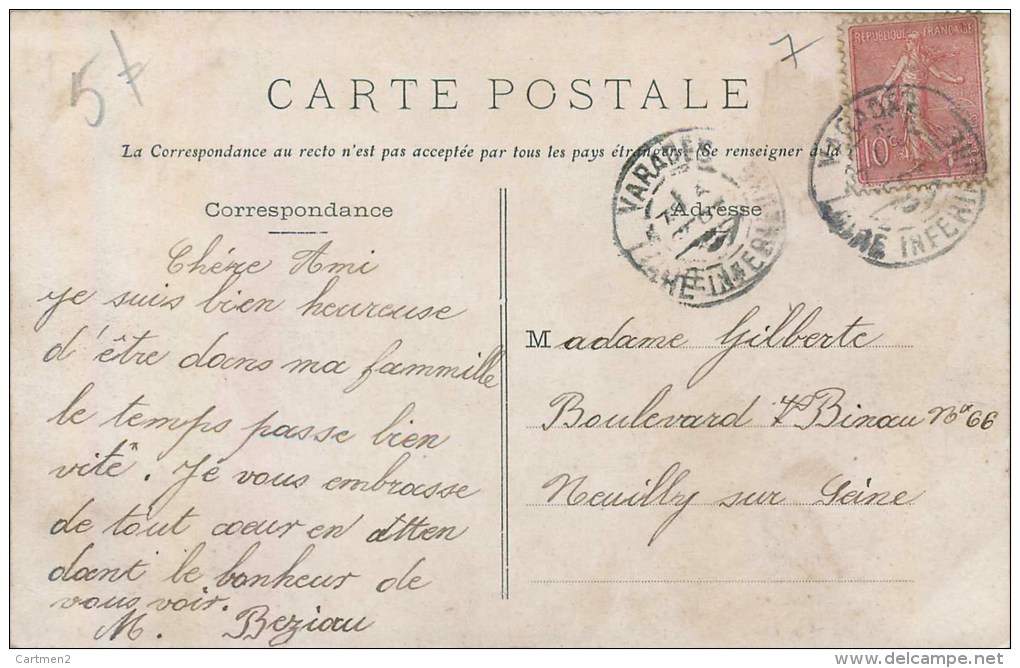 5
7
REPUBLIQUE FRANÇAISE
10 c
CARTE POSTALE
La Correspondance au recto n'est pas acceptée par tous les pays étrangers. (Se renseigner à la
VARADES
LOIRE-INFERIEURE
VARADES
LOIRE INFERIEURE
Correspondance
Chére Ami
je suis bien heureuse
d'être dans ma fammille
le temps passe bien
vite. Je vous embrasse
de tout coeur en atten
dant le bonheur de
vous voir.
M. Beziau
Adresse
Madame Gilberte
Boulevard Binau No 66
Neuilly sur Seine
Cartmen2
www.delcampe.net